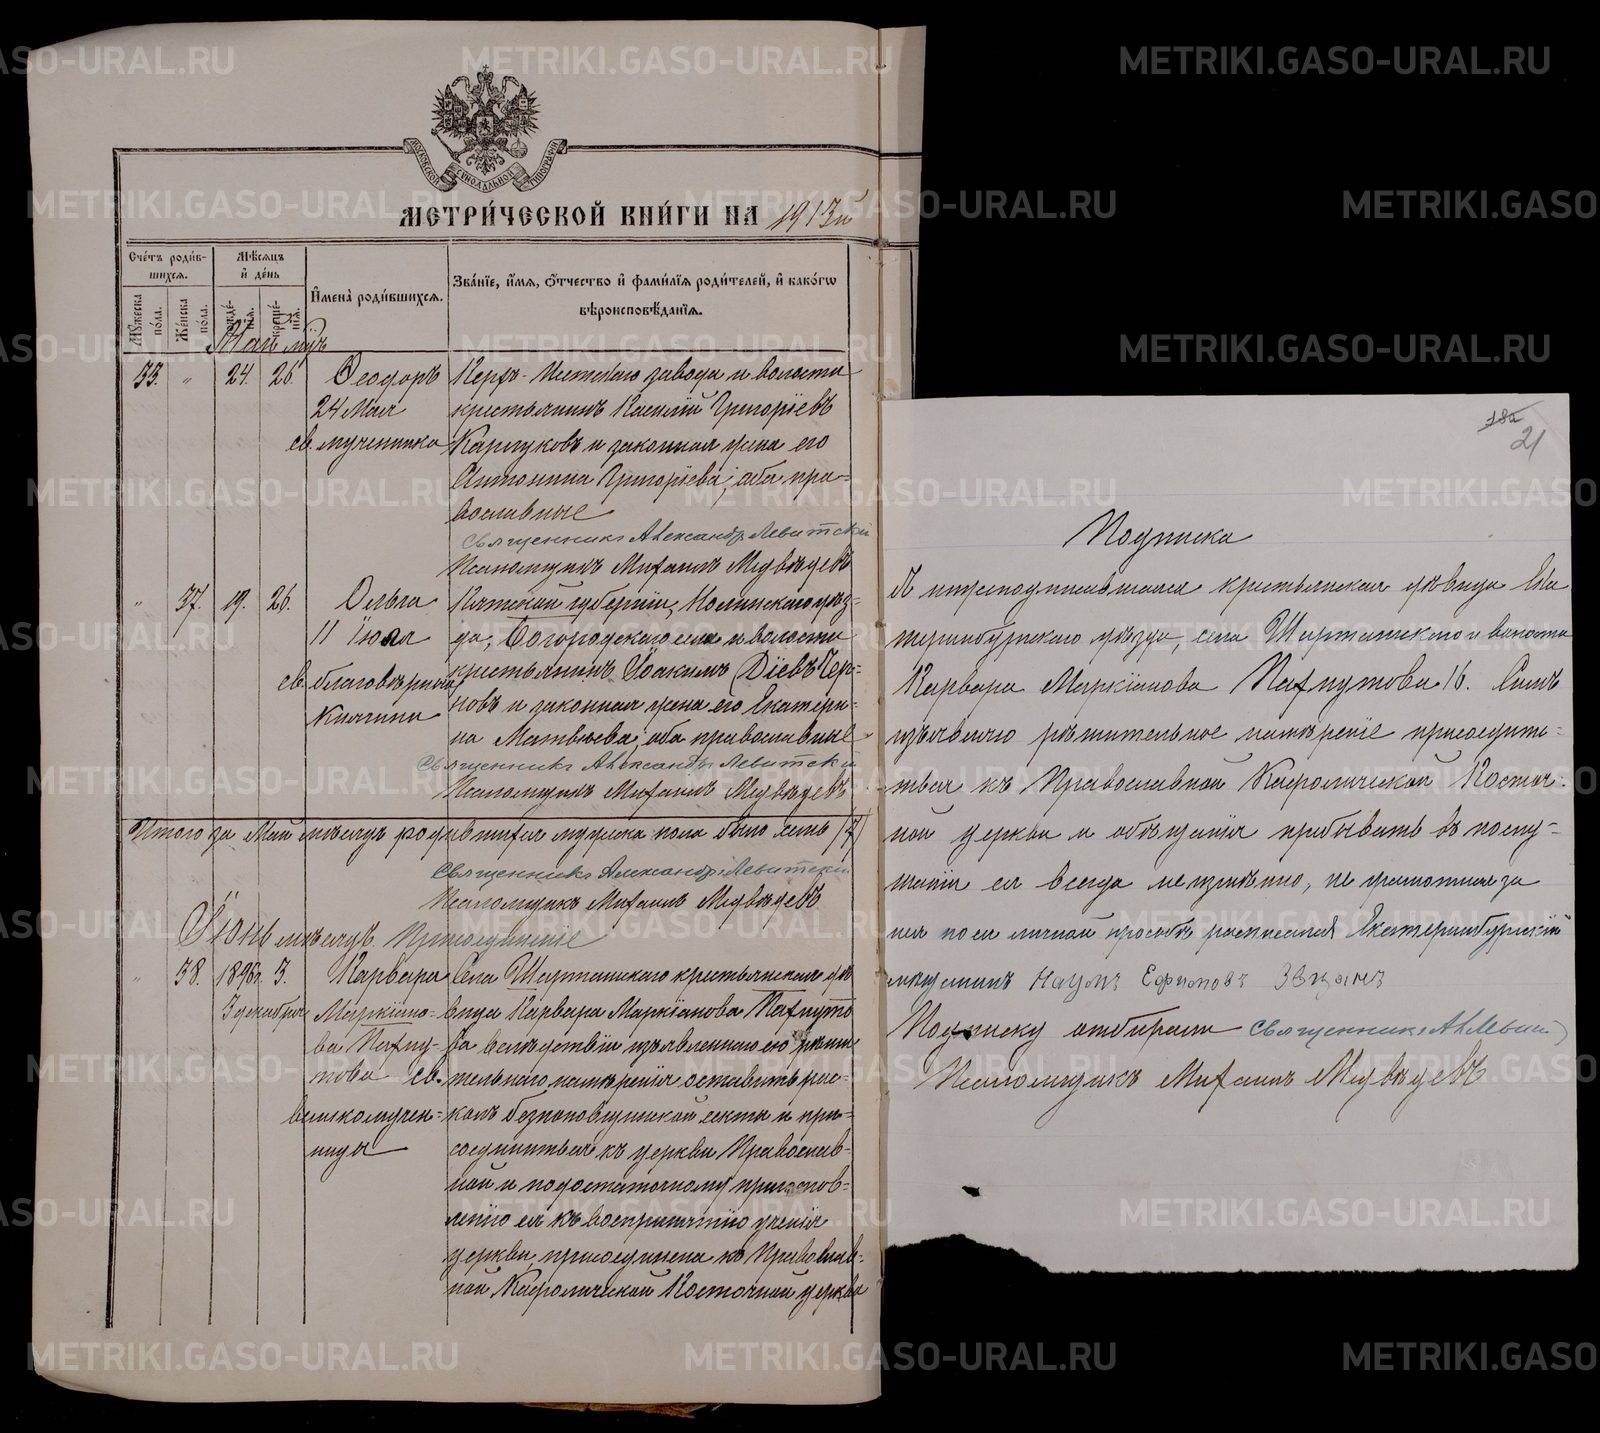 МЕТРИ́ЧЕСКОЙ КНИ́ГИ НА 1913й
МОСКОВСКОЙ СѴНОДАЛЬНОЙ ТИПОГРАФІИ
Сче́тъ роди́в-
шихся.
Мѣ́сяцъ
и҆ де́нь
И҆мена̀ роди́вшихся.
Зва́нїе, и҆́мя, ѻ҆́тчество и҆ фами́лїя роди́телей, и҆ како́гѡ
вѣроисповѣ́данїя.
Мꙋ́жеска по́ла.
Же́нска по́ла.
Май мцъ
55. " 24. 26. Ѳеодоръ
24 Мая
св. мученика
Верхъ-Исетскаго завода и волости
крестьянинъ Василій Григоріевъ
и законная жена его
Антонина Григоріева; оба пра-
вославные
Священникъ Александръ Левитскій
Псаломщикъ Михаилъ Медвѣдевъ
" 57. 19. 26. Ольга
11 Іюля
св. благовѣрныя
Княгини
Вятской губерніи, Нолинскаго уѣз-
да, Богородскаго села и волости
крестьянинъ Іоакимъ Діевъ Чер-
новъ и законная жена его Екатери-
на Матвѣева, оба православные
Священникъ Александръ Левитскій
Псаломщикъ Михаилъ Медвѣдевъ
Итого за Май мѣсяцъ родившихся мужска пола было семь (7)
Священникъ Александръ Левитскій
Псаломщикъ Михаилъ Медвѣдевъ
Іюнь мѣсяцъ. Присоединеніе
" 58. 1896г. 3. Варвара
3 декабря Маркіано-
ва Пафну-
това св.
великомучен-
ницы
Села Шарташскаго крестьянская дѣ
вица Варвара Маркіанова Пафнуто
ва вслѣдствіи изъявленнаго ею рѣши
тельнаго намѣренія оставить рас-
колъ безпоповщинской секты и при-
соединиться къ церкви Православ-
ной и по достаточному приготов-
ленію ея къ воспріятію ученія
церкви, присоединена къ Православ-
ной Каѳолической Восточной церкви
18а
21
Подписка
Я нижеподписавшаяся крестьянская дѣвица Ека
теринбургскаго уѣзда, села Шарташскаго и волости
Варвара Маркіанова Пафнутова 16. Симъ
изъявляю рѣшительное намѣреніе присоедить-
ться къ Православной Каѳолической Восточ-
ной церкви и обѣщаюся пребывать въ послу-
шаніи ея всегда неизмѣнно, не грамотная за
нея по ея личной просьбѣ росписался Екатеринбургскій
мѣщанинъ Наумъ Ефимовъ
Подписку отбирали Священникъ А. Левит
Псаломщикъ Михаилъ Медвѣдевъ
METRIKI.GASO-URAL.RU